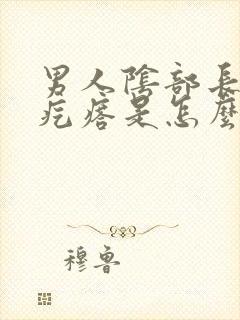 男人陰部長
疙瘩是怎麼
穆魯